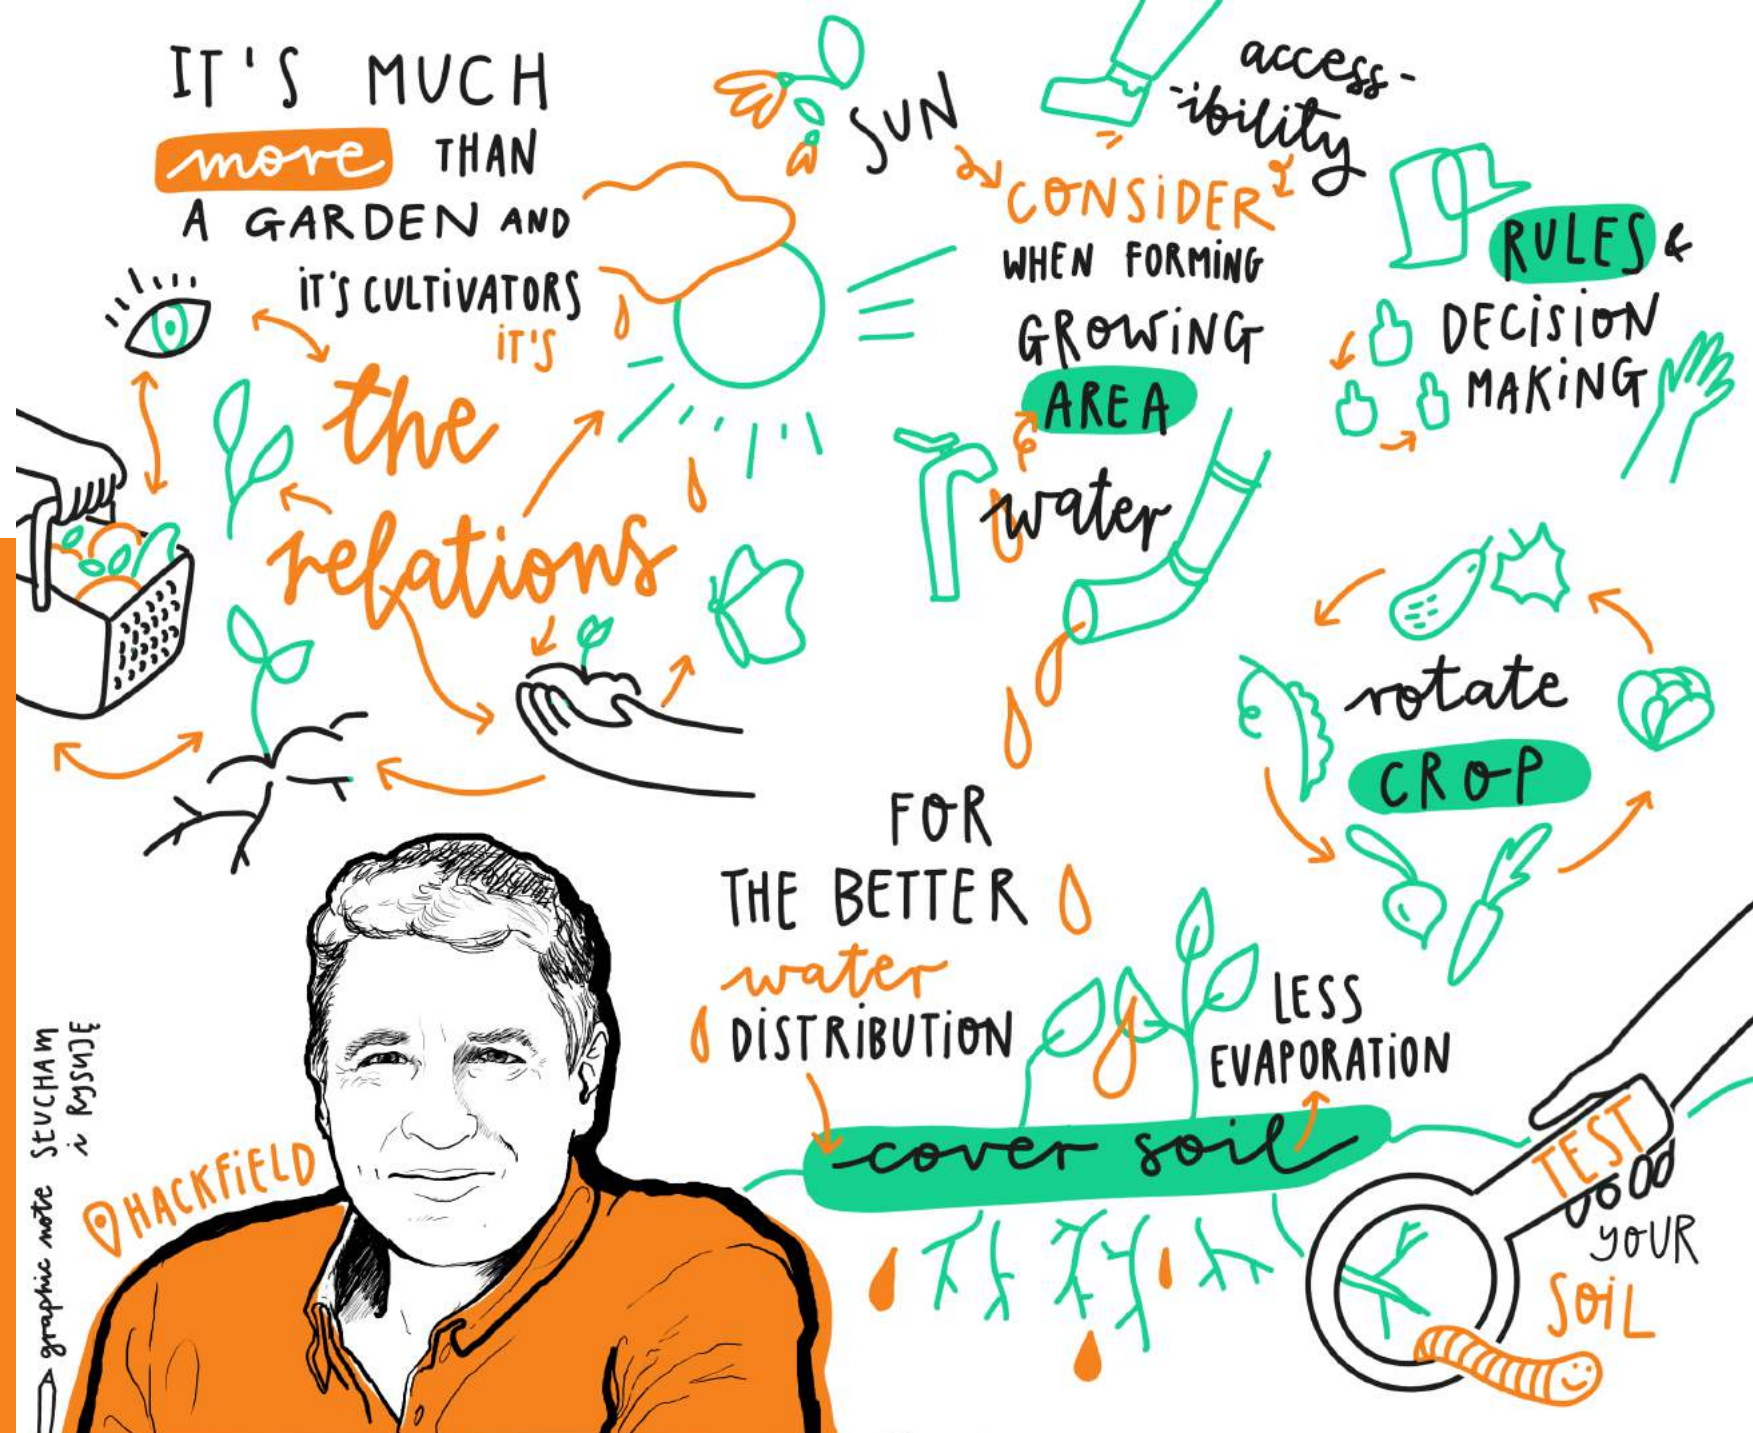 IT'S MUCH
more THAN
A GARDEN AND
IT'S CULTIVATORS
IT'S
the
relations
SUN
access-
-ibility
CONSIDER
WHEN FORMING
GROWING
AREA
water
RULES &
DECISION
MAKING
rotate
CROP
FOR
THE BETTER
water
DISTRIBUTION
LESS
EVAPORATION
cover soil
TEST
YOUR
SOIL
HACKFIELD
graphic note SŁUCHAM
i RYSUJĘ